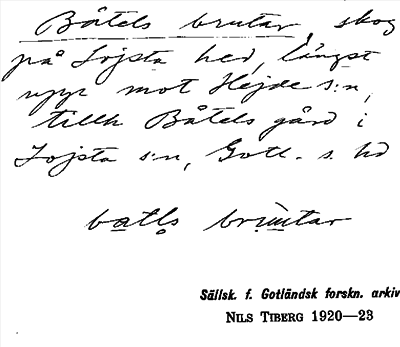 Båtels brutar, skog
på Lojsta hed, längst
upp mot Hejde s:n,
tillh Båtels gård i
Lojsta s:n, Gotl. s. hd
batls bruntar
Sällsk. f. Gotländsk forskn. arkiv
NILS TIBERG 1920—23